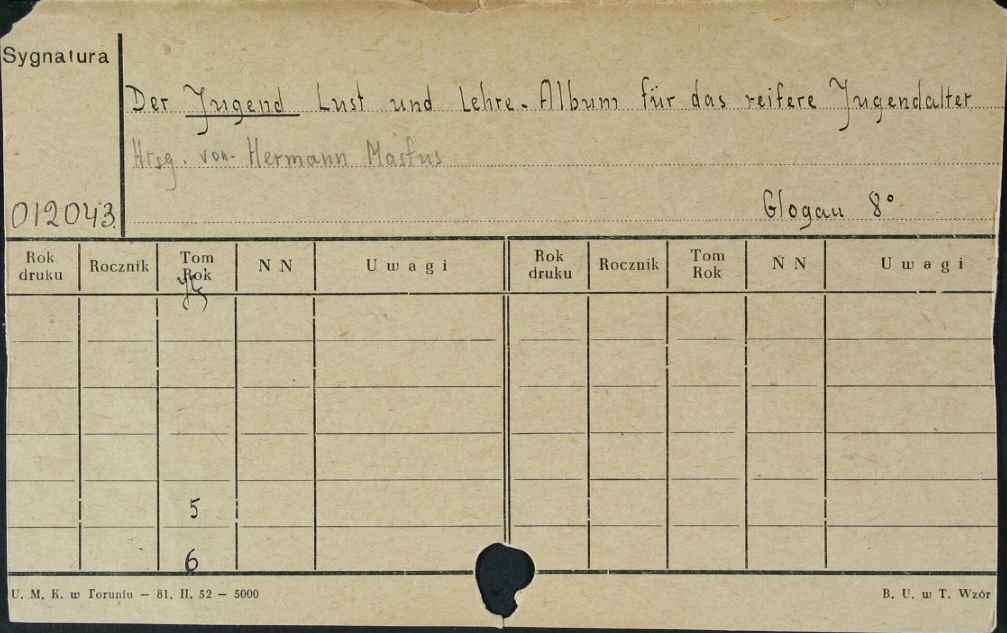 Sygnatura
Der Jugend Lust und Lehre. Album für das reifere Jugendalter
Hrsg. von Hermann Masius
012043
Glogau 8°
Rok druku Rocznik Tom Rok N N Uwagi Rok druku Rocznik Tom Rok N N Uwagi
5
6
U. M. K. w Toruniu — 81. II. 52 — 5000 B. U. w T. Wzór